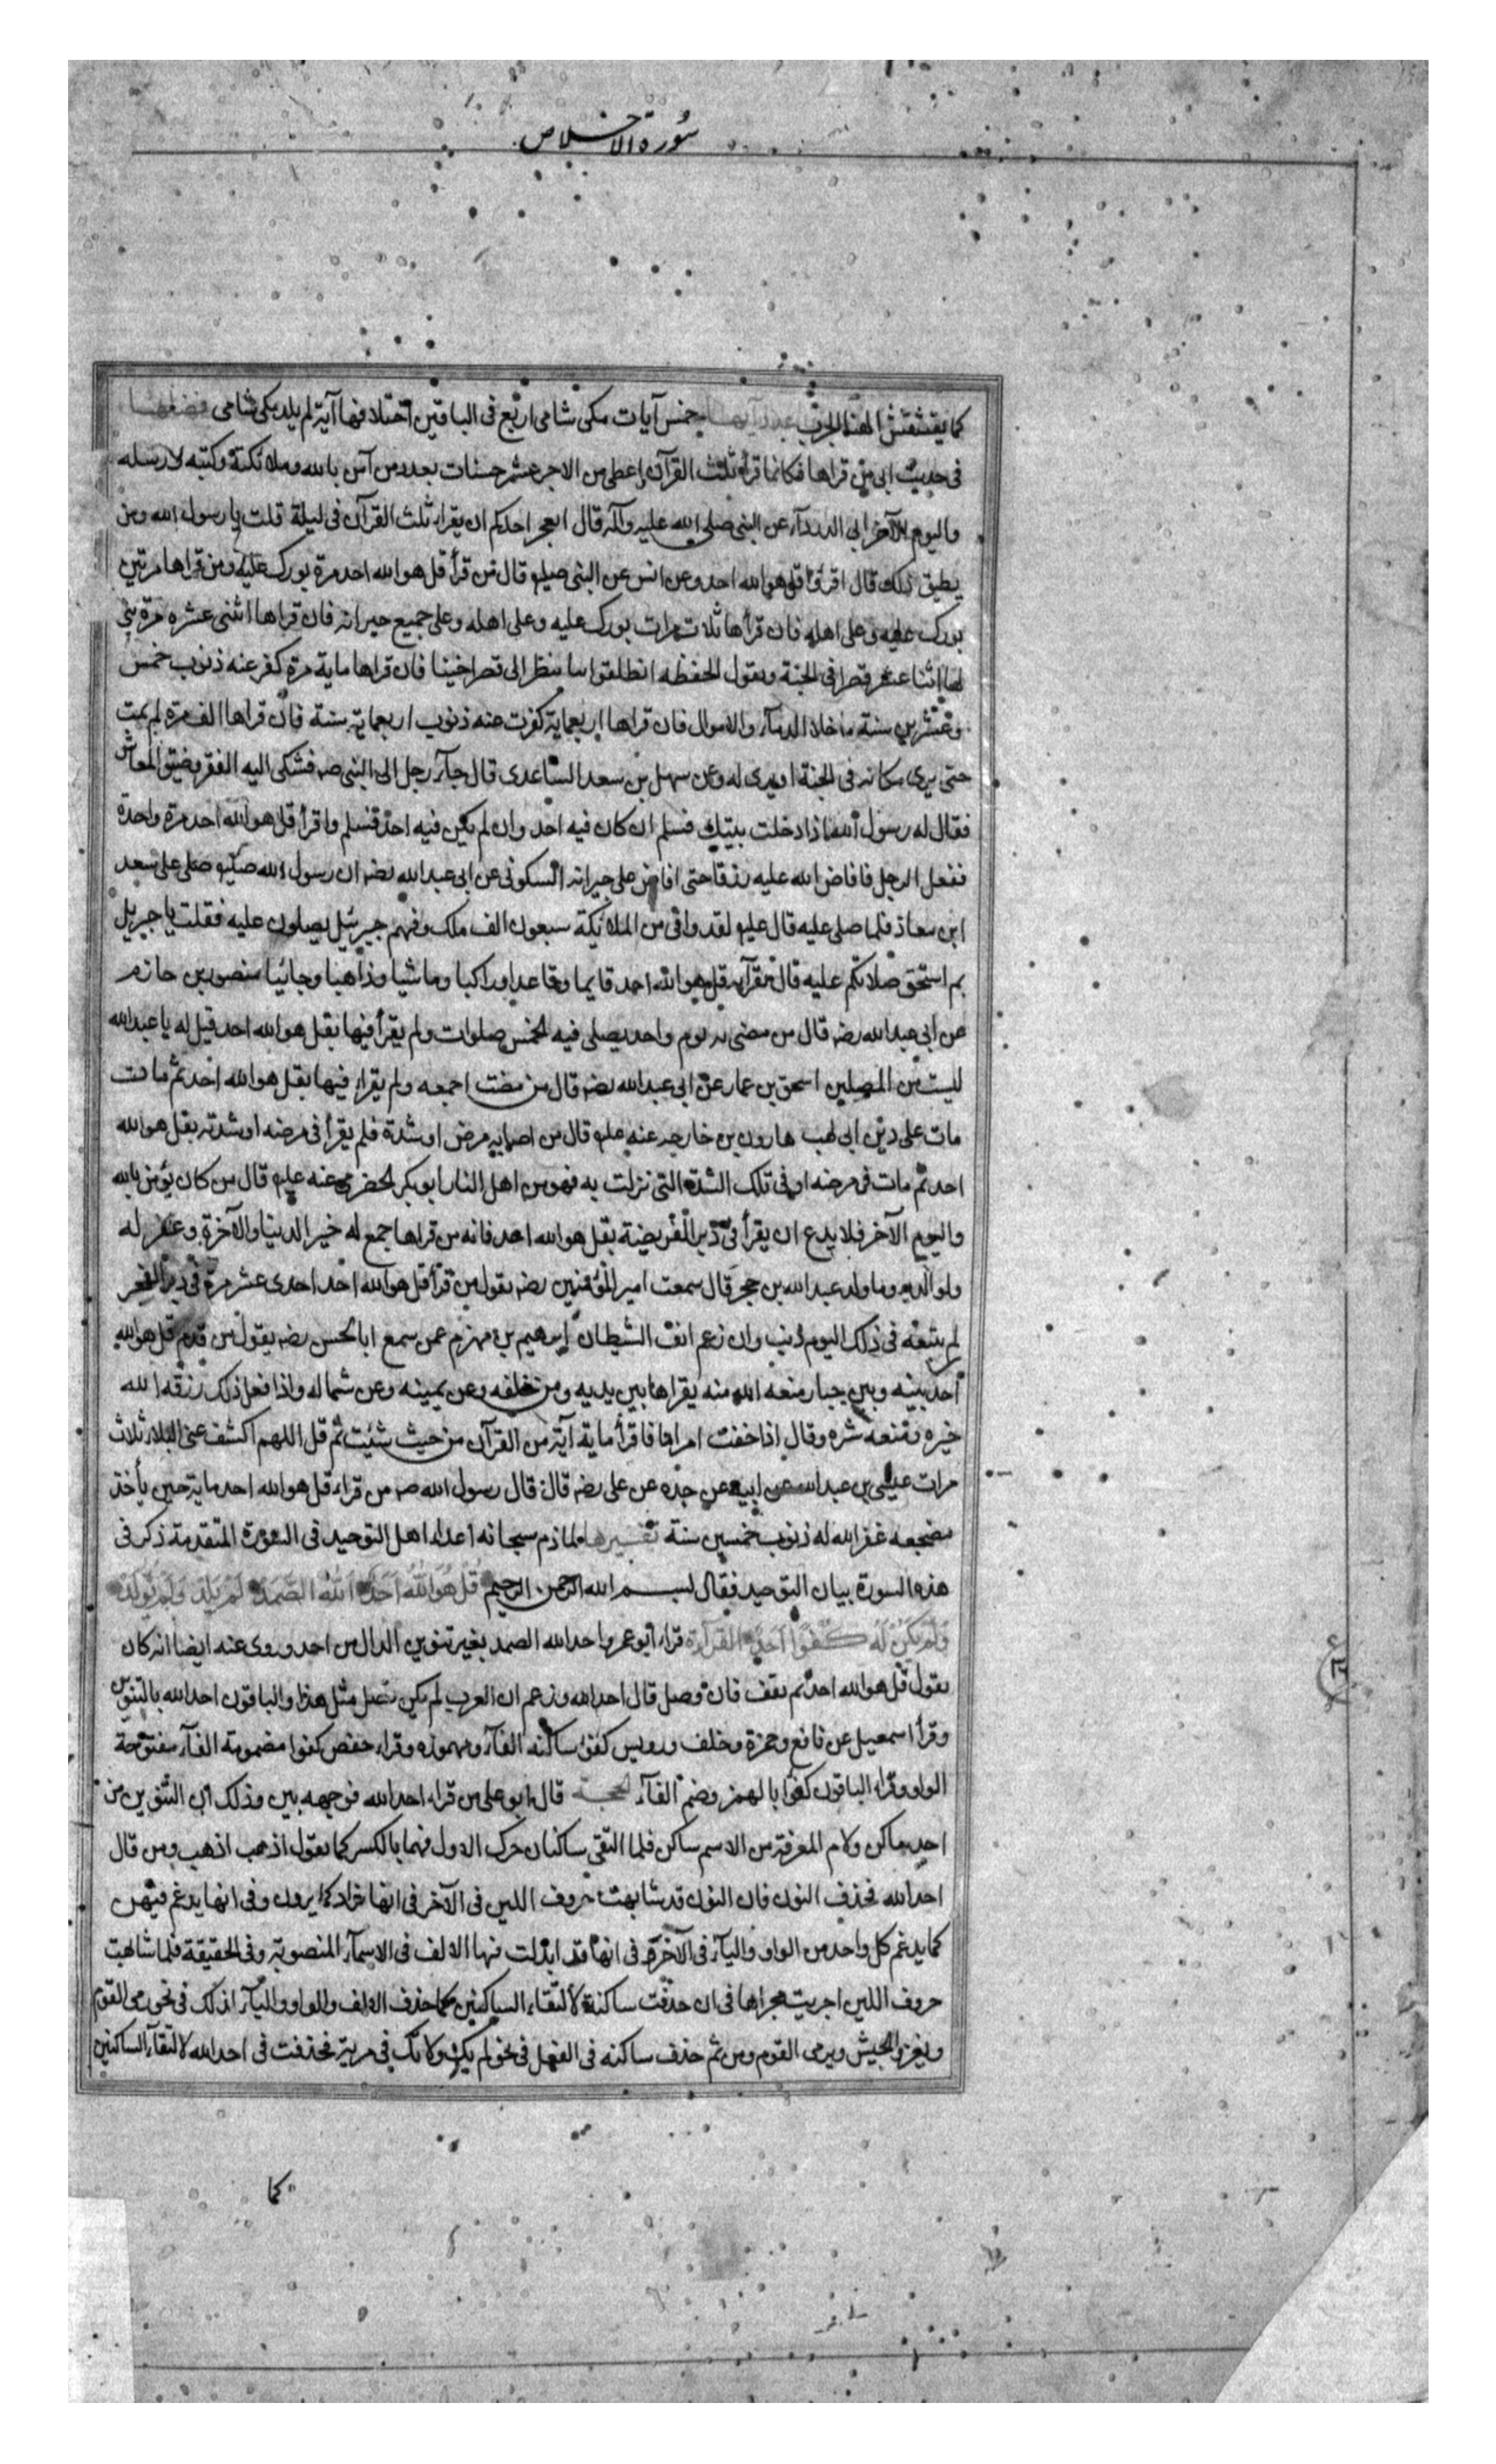 سورة الاخلاص
كما يقشقش الهناء الجرب عدد آيها خمس آيات مكى شامى اربع فى الباقين اختلافها آية لم يلد مكى شامى فضلها
فى حديث ابى من قراها فكانما قراء ثلث القرآن واعطى من الاجر عشر حسنات بعدد من آمن بالله وملائكته وكتبه ورسله
واليوم الآخر ابى الدرداء عن النبى صلى الله عليه وآله قال ايعجز احدكم ان يقراء ثلث القرآن فى ليلة قلت يا رسول الله ومن
يطيق ذلك قال اقرؤا قل هو الله احد وعن انس عن النبى صلى‌ قال من قرأ قل هو الله احد مرة بورك عليه ومن قراها مرتين
بورك عليه وعلى اهله فان قرأها ثلاث مرات بورك عليه وعلى اهله وعلى جميع جيرانه فان قراها اثنى عشره مرة بنى
لها اثنا عشر قصرا فى الجنة ويقول الحفظه انطلقوا بنا ننظر الى قصر اخينا فان قراها ماية مرة كفر عنه ذنوب خمس
وعشرين سنة ما خلا الدمآء والاموال فان قراها اربعماية كفرت عنه ذنوب اربعماية سنة فان قراها الف مرة لم يمت
حتى يرى مكانه فى الجنة او يرى له وعن سهل بن سعد الساعدى قال جآء رجل الى النبى صه فشكى اليه الفقر وضيق المعاش
فقال له رسول الله اذا دخلت بيتك فسلم ان كان فيه احد وان لم يكن فيه احد فسلم واقرأ قل هو الله احد مرة واحدة
ففعل الرجل فافاض الله عليه رزقا حتى افاض على جيرانه السكونى عن ابى عبد الله رضه ان رسول الله صلى على سعد
ابن معاذ فلما صلى عليه قال عليه لقد وافى من الملائكة سبعون الف ملك وفيهم جبرئيل يصلون عليه فقلت يا جبريل
بم استحق صلاتكم عليه قال بقرآءة قل هو الله احد قايما وقاعدا وراكبا وماشيا وذاهبا وجائيا منصور بن حازم
عن ابى عبد الله رضه قال من مضى به يوم واحد يصلى فيه الخمس صلوات ولم يقرأ فيها بقل هو الله احد قيل له يا عبد الله
ليست من المصلين اسحق بن عمار عن ابى عبد الله رضه قال من مضت اجمعه ولم يقراء فيها بقل هو الله احد ثم مات
مات على دين ابى لهب هارون بن خارجه عنه عليه قال من اصابه مرض او شدة فلم يقرأ فى مرضه او شدته بقل هو الله
احد ثم مات فى مرضه او فى تلك الشدة التى نزلت به فهو من اهل النار ابو بكر الحضرمى عنه عليه قال من كان يؤمن بالله
واليوم الآخر فلا يدع ان يقرأ فى دبر الفريضة بقل هو الله احد فانه من قراها جمع له خير الدنيا والآخرة وغفر له
ولوالديه وما ولد عبد الله بن حجر قال سمعت امير المؤمنين رضه يقول من قرأ قل هو الله احد احدى عشر مرة فى دبر الفجر
لم يتبعه فى ذلك اليوم ذنب وان زعم انف الشيطان ابرهيم بن مهزم عمن سمع ابا الحسن رضه يقول من قدم قل هو الله
احد بينه وبين جبار منعه الله منه يقراها بين يديه ومن خلفه وعن يمينه وعن شماله واذا فعل ذلك رزقه الله
خيره ومنعه شره وقال اذا خفت امرا فاقرأ ماية آية من القرآن من حيث شئت ثم قل اللهم اكشف عنى البلاء ثلاث
مرات عيسى بن عبد الله عن ابيه عن جده عن على رضه قال قال رسول الله صه من قراء قل هو الله احد ماية حين يأخذ
مضجعه غفر الله له ذنوب خمسين سنة تفسيرها لما ذم سبحانه اعداء اهل التوحيد فى السورة المتقدمة ذكر فى
هذه السورة بيان التوحيد فقال بسم الله الرحمن الرحيم قُلْ هُوَ اللهُ اَحَدٌ اَللهُ الصَّمَدُ لَمْ يَلِدْ وَلَمْ يُولَدْ
وَلَمْ يَكُنْ لَهُ كُفُوًا اَحَدٌ القرآءة قراء ابو عمرو احد الله الصمد بغير تنوين الدال من احد وروى عنه ايضا انه كان
يقول قل هو الله احد ثم يقف فان وصل قال احد الله وزعم ان العرب لم يكن تصل مثل هذا والباقون احد الله بالتنوين
وقرأ اسمعيل عن نافع وحمزة وخلف ورويس كفؤا ساكنه الفآء ومهموزه وقراء حفص كفوا مضمومة الفآء مفتوحة
الواو وقراء الباقون كفؤا بالهمز وضم الفآء الحجة قال ابو على من قراء احد الله فوجهه بين وذلك ان التنوين من
احد ساكن ولام المعرفة من الاسم ساكن فلما التقى ساكنان حرك الاول منهما بالكسر كما يقول اذهب اذهب ومن قال
احد الله فحذف النون فان النون قد شابهت حروف اللين فى الآخر فى انها تزاد كما يزدن وفى انها يدغم فيهن
كما يدغم كل واحد من الواو واليآء فى الآخر وفى انها قد ابدلت منها الالف فى الاسمآء المنصوبة وفى الحقيقة فلما شابهت
حروف اللين اجريت مجراها فى ان حذفت ساكنة لالتقاء الساكنين كما حذف الالف والواو واليآء لذلك فى نحو رمى القوم
ويغزو الجيش ويرمى القوم ومن ثم حذف ساكنه فى الفعل فى نحو لم يك ولا تك فى مرية فحذفت فى احد الله لالتقآء الساكنين
كما